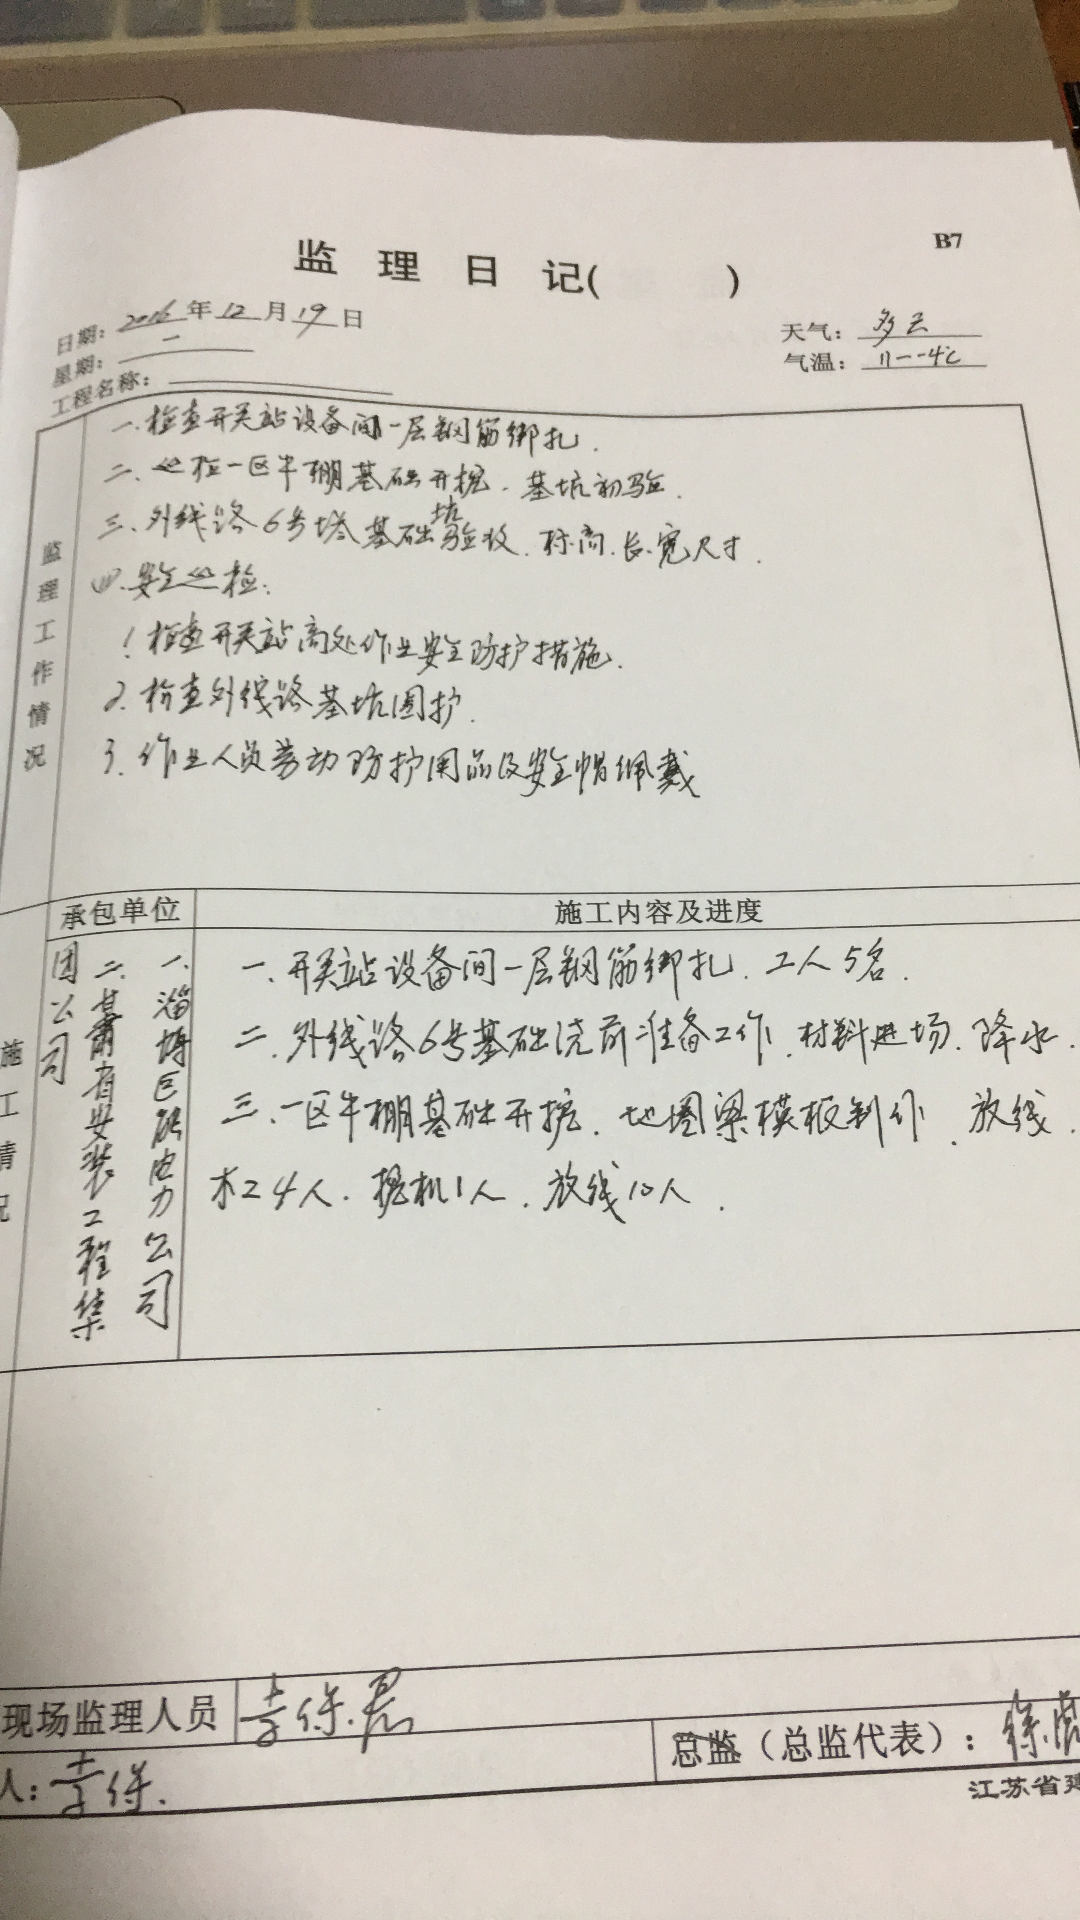 B7
监 理 日 记( )
日期：2016年12月19日
天气：多云
星期：一
气温：11--4℃
工程名称：
监理工作情况
一.检查开关站设备间一层钢筋绑扎.
二.巡检一区牛棚基础开挖.基坑初验.
三.外线路6号塔基础坑验收.标高.长.宽尺寸.
四.安全巡检:
1.检查开关站高处作业安全防护措施.
2.检查外线路基坑围护.
3.作业人员劳动防护用品及安全帽佩戴
承包单位
施工内容及进度
施工情况
一.淄博巨能电力公司
二.甘肃省安装工程集
团公司
一.开关站设备间一层钢筋绑扎.工人5名.
二.外线路6号基础浇前准备工作.材料进场.降水.
三.一区牛棚基础开挖.地圈梁模板制作.放线.
木工4人.挖机1人.放线10人.
现场监理人员
李保
总监（总监代表）：徐
人：李保.
江苏省建